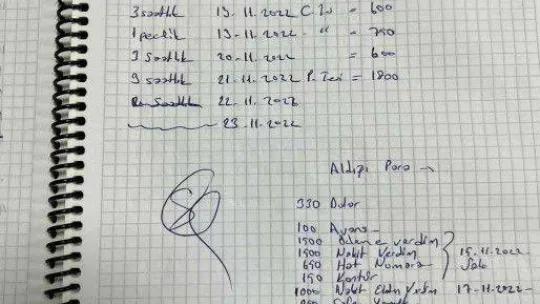 3 saatlik 19.11.2022 C.Tesi = 600
1 pecelik 19.11.2022 " = 750
3 Saatlik 20-11-2022 = 600
9 saatlik 21-11-2022 P.Tesi = 1800
Saatlik 22-11-2022
23.11-2022
Aldığı Para
330 Dolar
100 Avans
1500 ödeme verdim
1500 Nakit Verdim 15.11.2022
650 Hat Numara Salı
150 Kontör
1000 Nakit Elden Verdim 17-11-2022